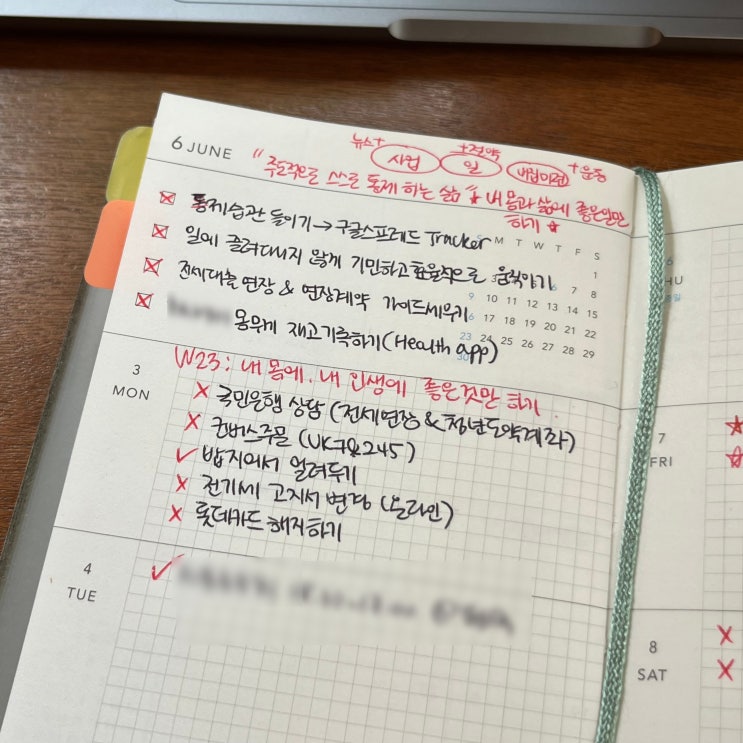 6 JUNE
뉴스+ +전략 +운동
사업 일 배첼미션
"주도적으로 쓰고 통제 하는 삶" ★ 내 몸과 삶에 좋은일만
하기 ★
통제습관 들이기 → 구글스프레드 Tracker
일에 끌려다니지 않게 기민하고 효율적으로 움직이기
전세대출 연장 & 연장계약 가이드세우기
몸무게 재고기록하기 (Health app)
M T W T F S
1
7 8
9 10 11 12 13 14 15
16 17 18 19 20 21 22
23 24 25 26 27 28 29
30
3
MON
W23: 내 몸에. 내 인생에 좋은것만 하기
X 국민은행 상담 (전세연장 & 청년도약계좌)
X 컨버스주문 (UK7& 245)
✓ 밥지어서 얼려두기
X 전기세 고지서 변경 (온라인)
X 롯데카드 해지하기
4
TUE
✓
6
HU
7
FRI
8
SAT
X
X